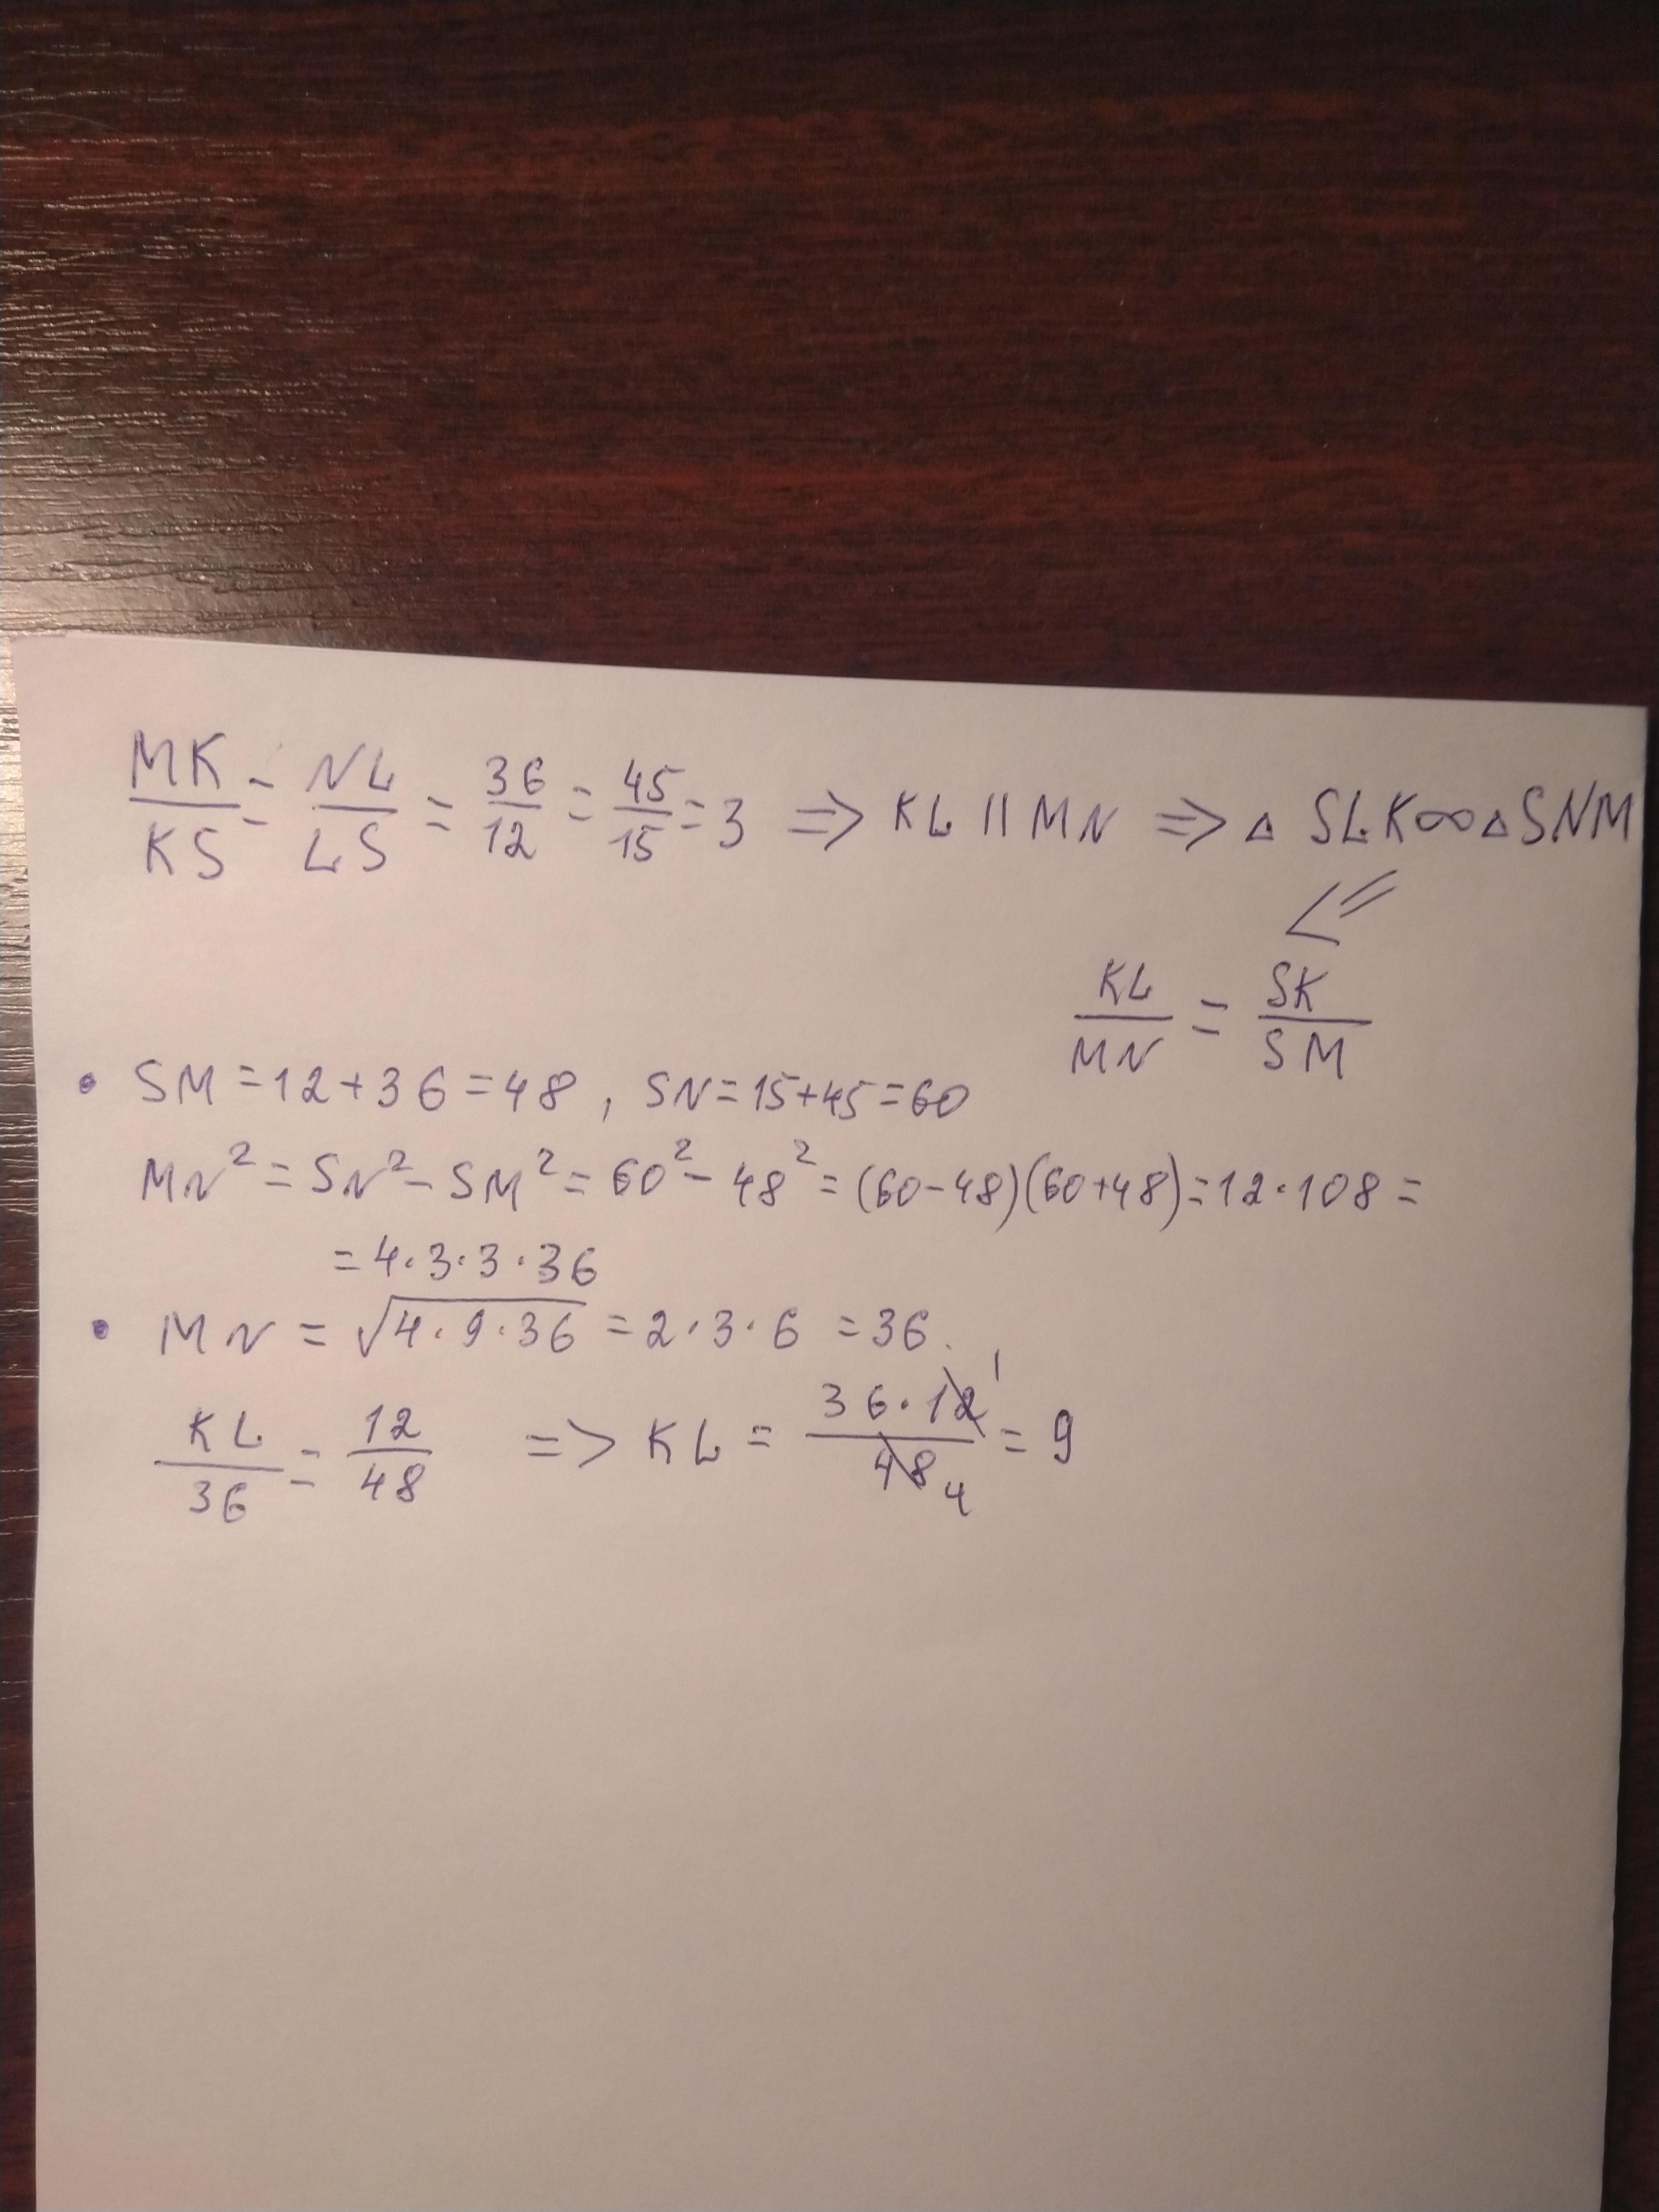 MK/KS = NL/LS = 36/12 = 45/15 = 3 => KL || MN => △ SLK ∞ △ SNM
KL/MN = SK/SM
• SM = 12 + 36 = 48, SN = 15 + 45 = 60
MN² = SN² - SM² = 60² - 48² = (60 - 48)(60 + 48) = 12 · 108 =
= 4 · 3 · 3 · 36
• MN = √4 · 9 · 36 = 2 · 3 · 6 = 36.
KL/36 = 12/48 => KL = 36 · 12 1/48 4 = 9